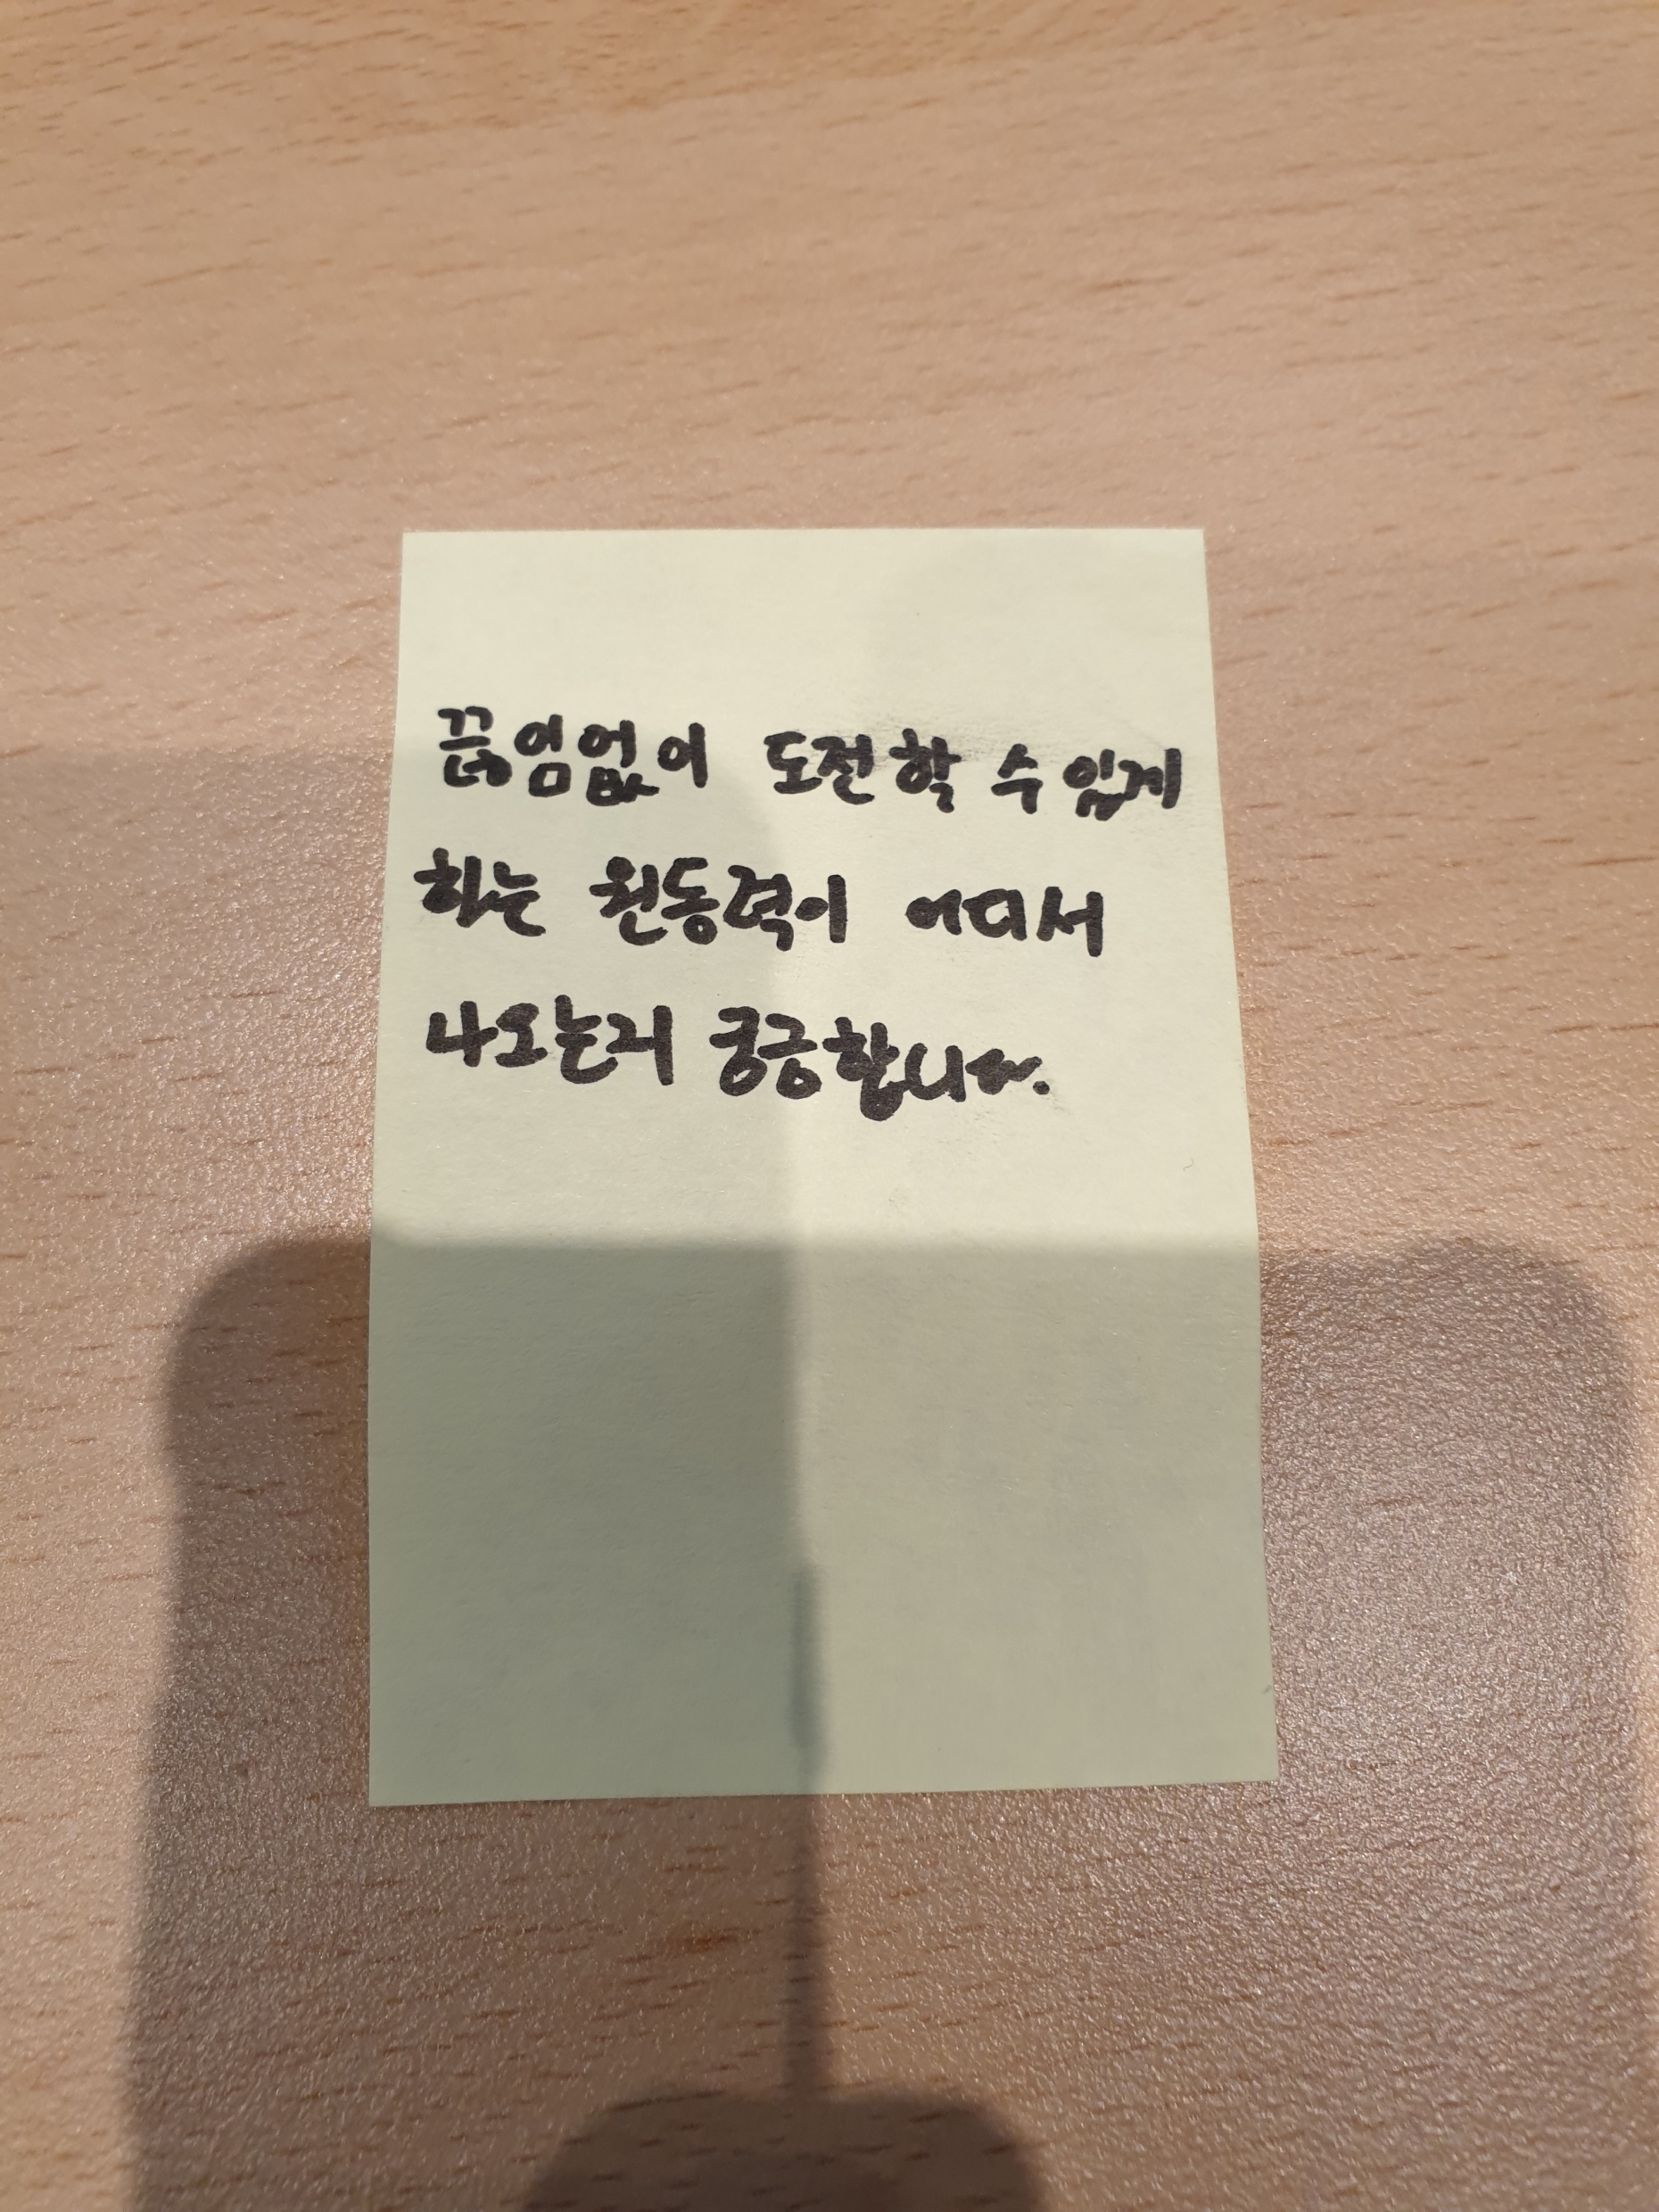 끊임없이 도전할 수 있게
하는 원동력이 어디서
나오는지 궁금합니다.